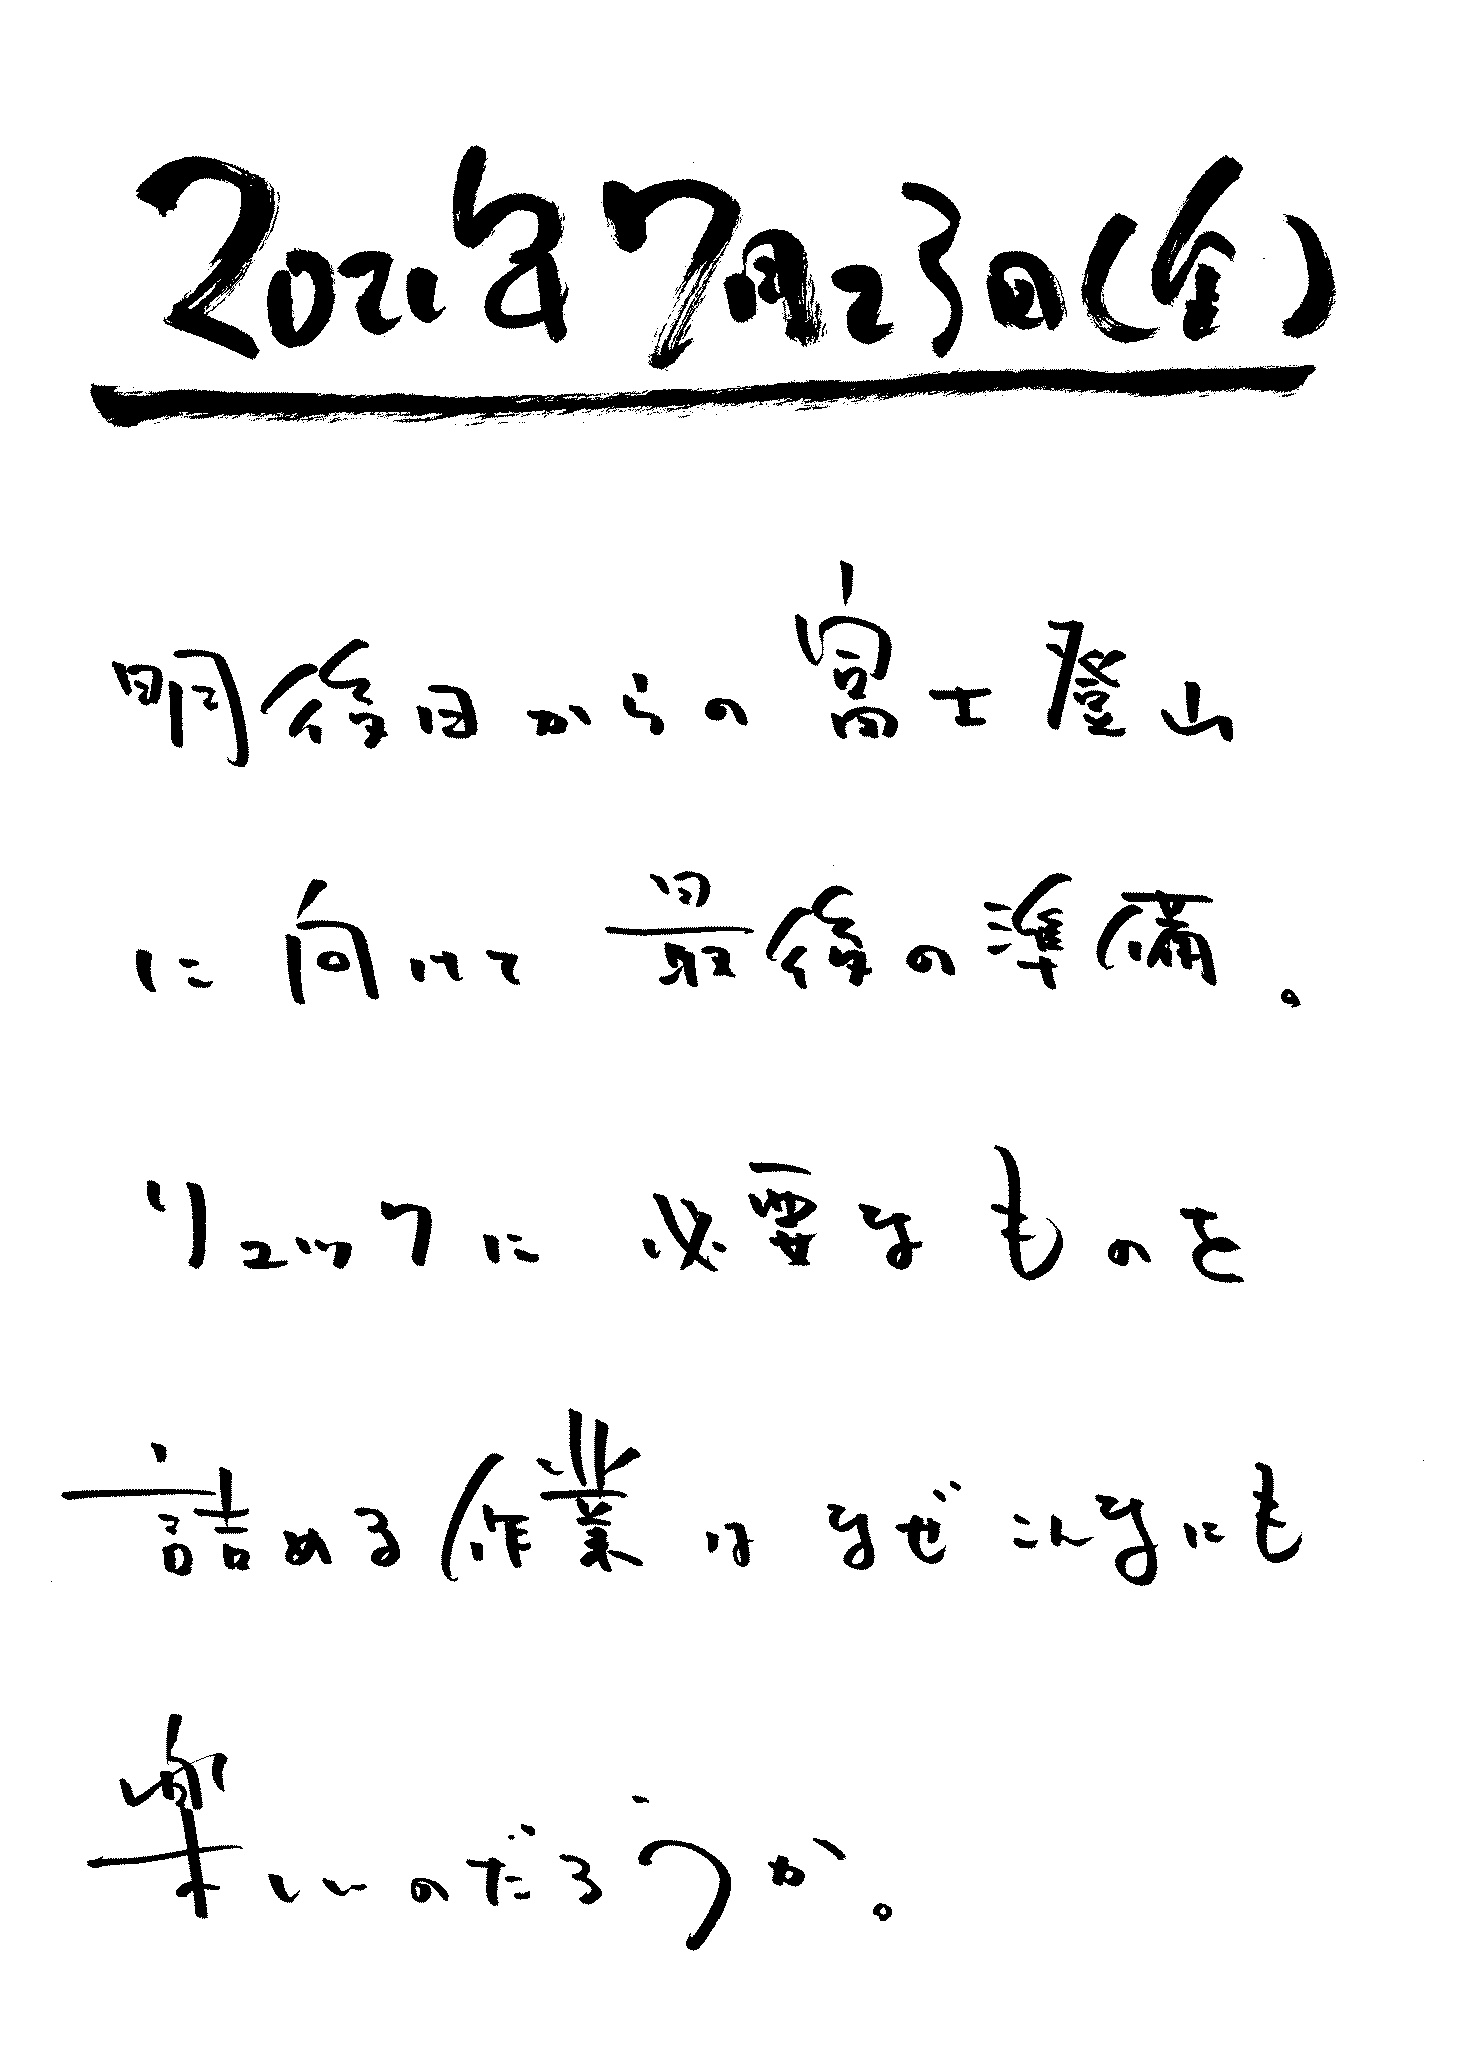 2021年7月23日(金)
明後日からの富士登山
に向けて最後の準備。
リュックに必要なものを
詰める作業はなぜこんなにも
楽しいのだろうか。